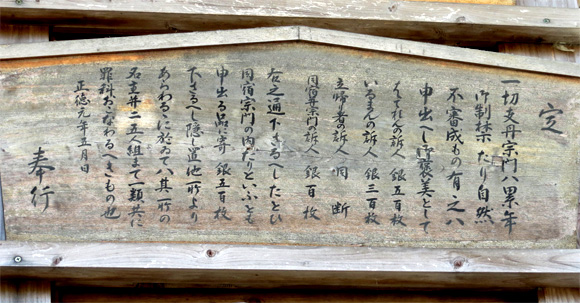 定
一切支丹宗門ハ累年
御制禁たり自然
不審成もの有之ハ
申出へし御褒美として
はてれんの訴人 銀五百枚
いるまんの訴人 銀三百枚
立帰り者の訴人 同断
同宿并宗門の訴人 銀百枚
右之通下さるへしたとひ
同宿宗門の内たりといふとも
申出る品に寄 銀五百枚
下さるへし隠し置他所より
あらわるゝに於ゐてハ其所の
名主并ニ五人組まて一類共に
罪科おこなわるへきもの也
正徳元年五月日
奉行